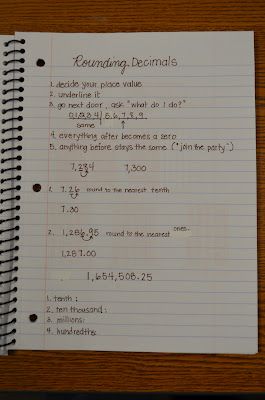 Rounding Decimals
1. decide your place value
2. underline it
3. go next door, ask "what do I do?"
0,1,2,3,4 | 5,6,7,8,9
same ↑
4. everything after becomes a zero
5. anything before stays the same ("join the party")
7,284 7,300
1. 7.26 round to the nearest tenth
7.30
2. 1,286.95 round to the nearest ones.
1,287.00
1,654,508.25
1. tenth:
2. ten thousand:
3. millions:
4. hundredths: